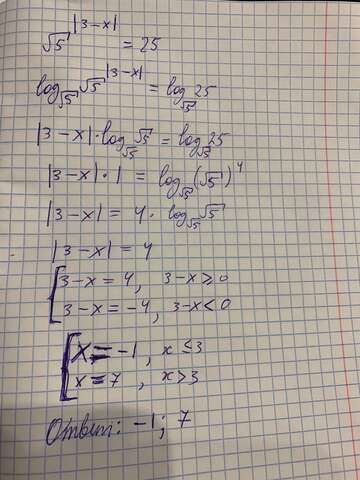 √5^|3-x| = 25
log_√5 √5^|3-x| = log_√5 25
|3-x| · log_√5 √5 = log_√5 25
|3-x| · 1 = log_√5 (√5)^4
|3-x| = 4 · log_√5 √5
|3-x| = 4
[3-x = 4, 3-x ≥ 0
3-x = -4, 3-x < 0
[x = -1, x ≤ 3
x = 7, x > 3
Ответ: -1; 7